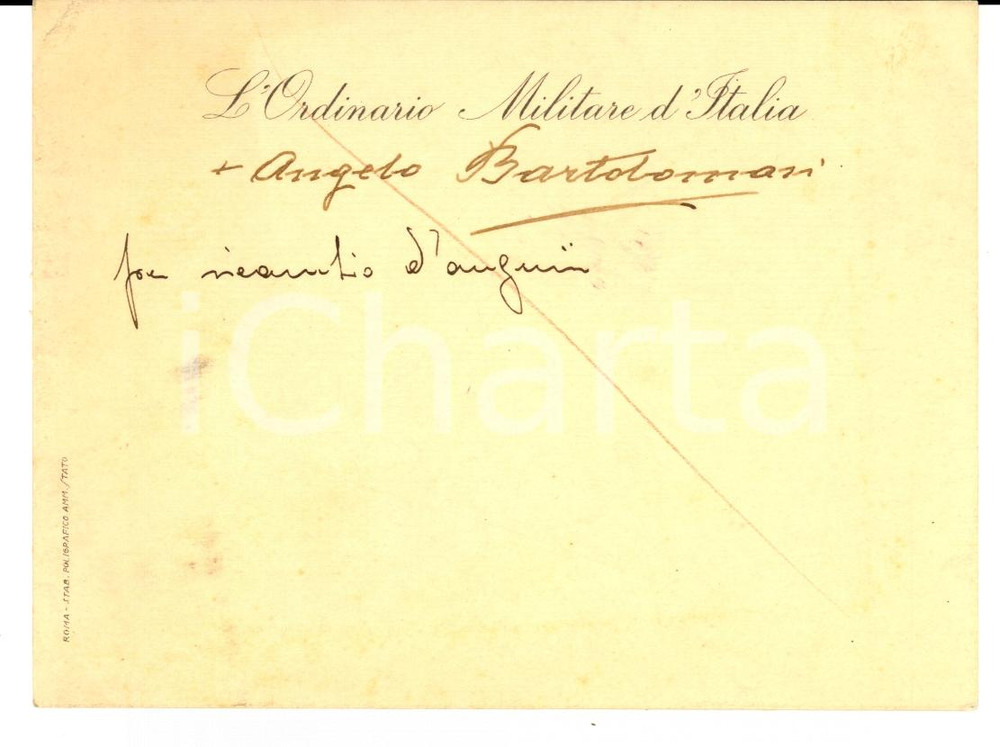 L'Ordinario Militare d'Italia
+ Angelo Bartolomasi
per ricambio d'augurii
iCharta
ROMA - STAB. POLIGRAFICO AMM./TATO